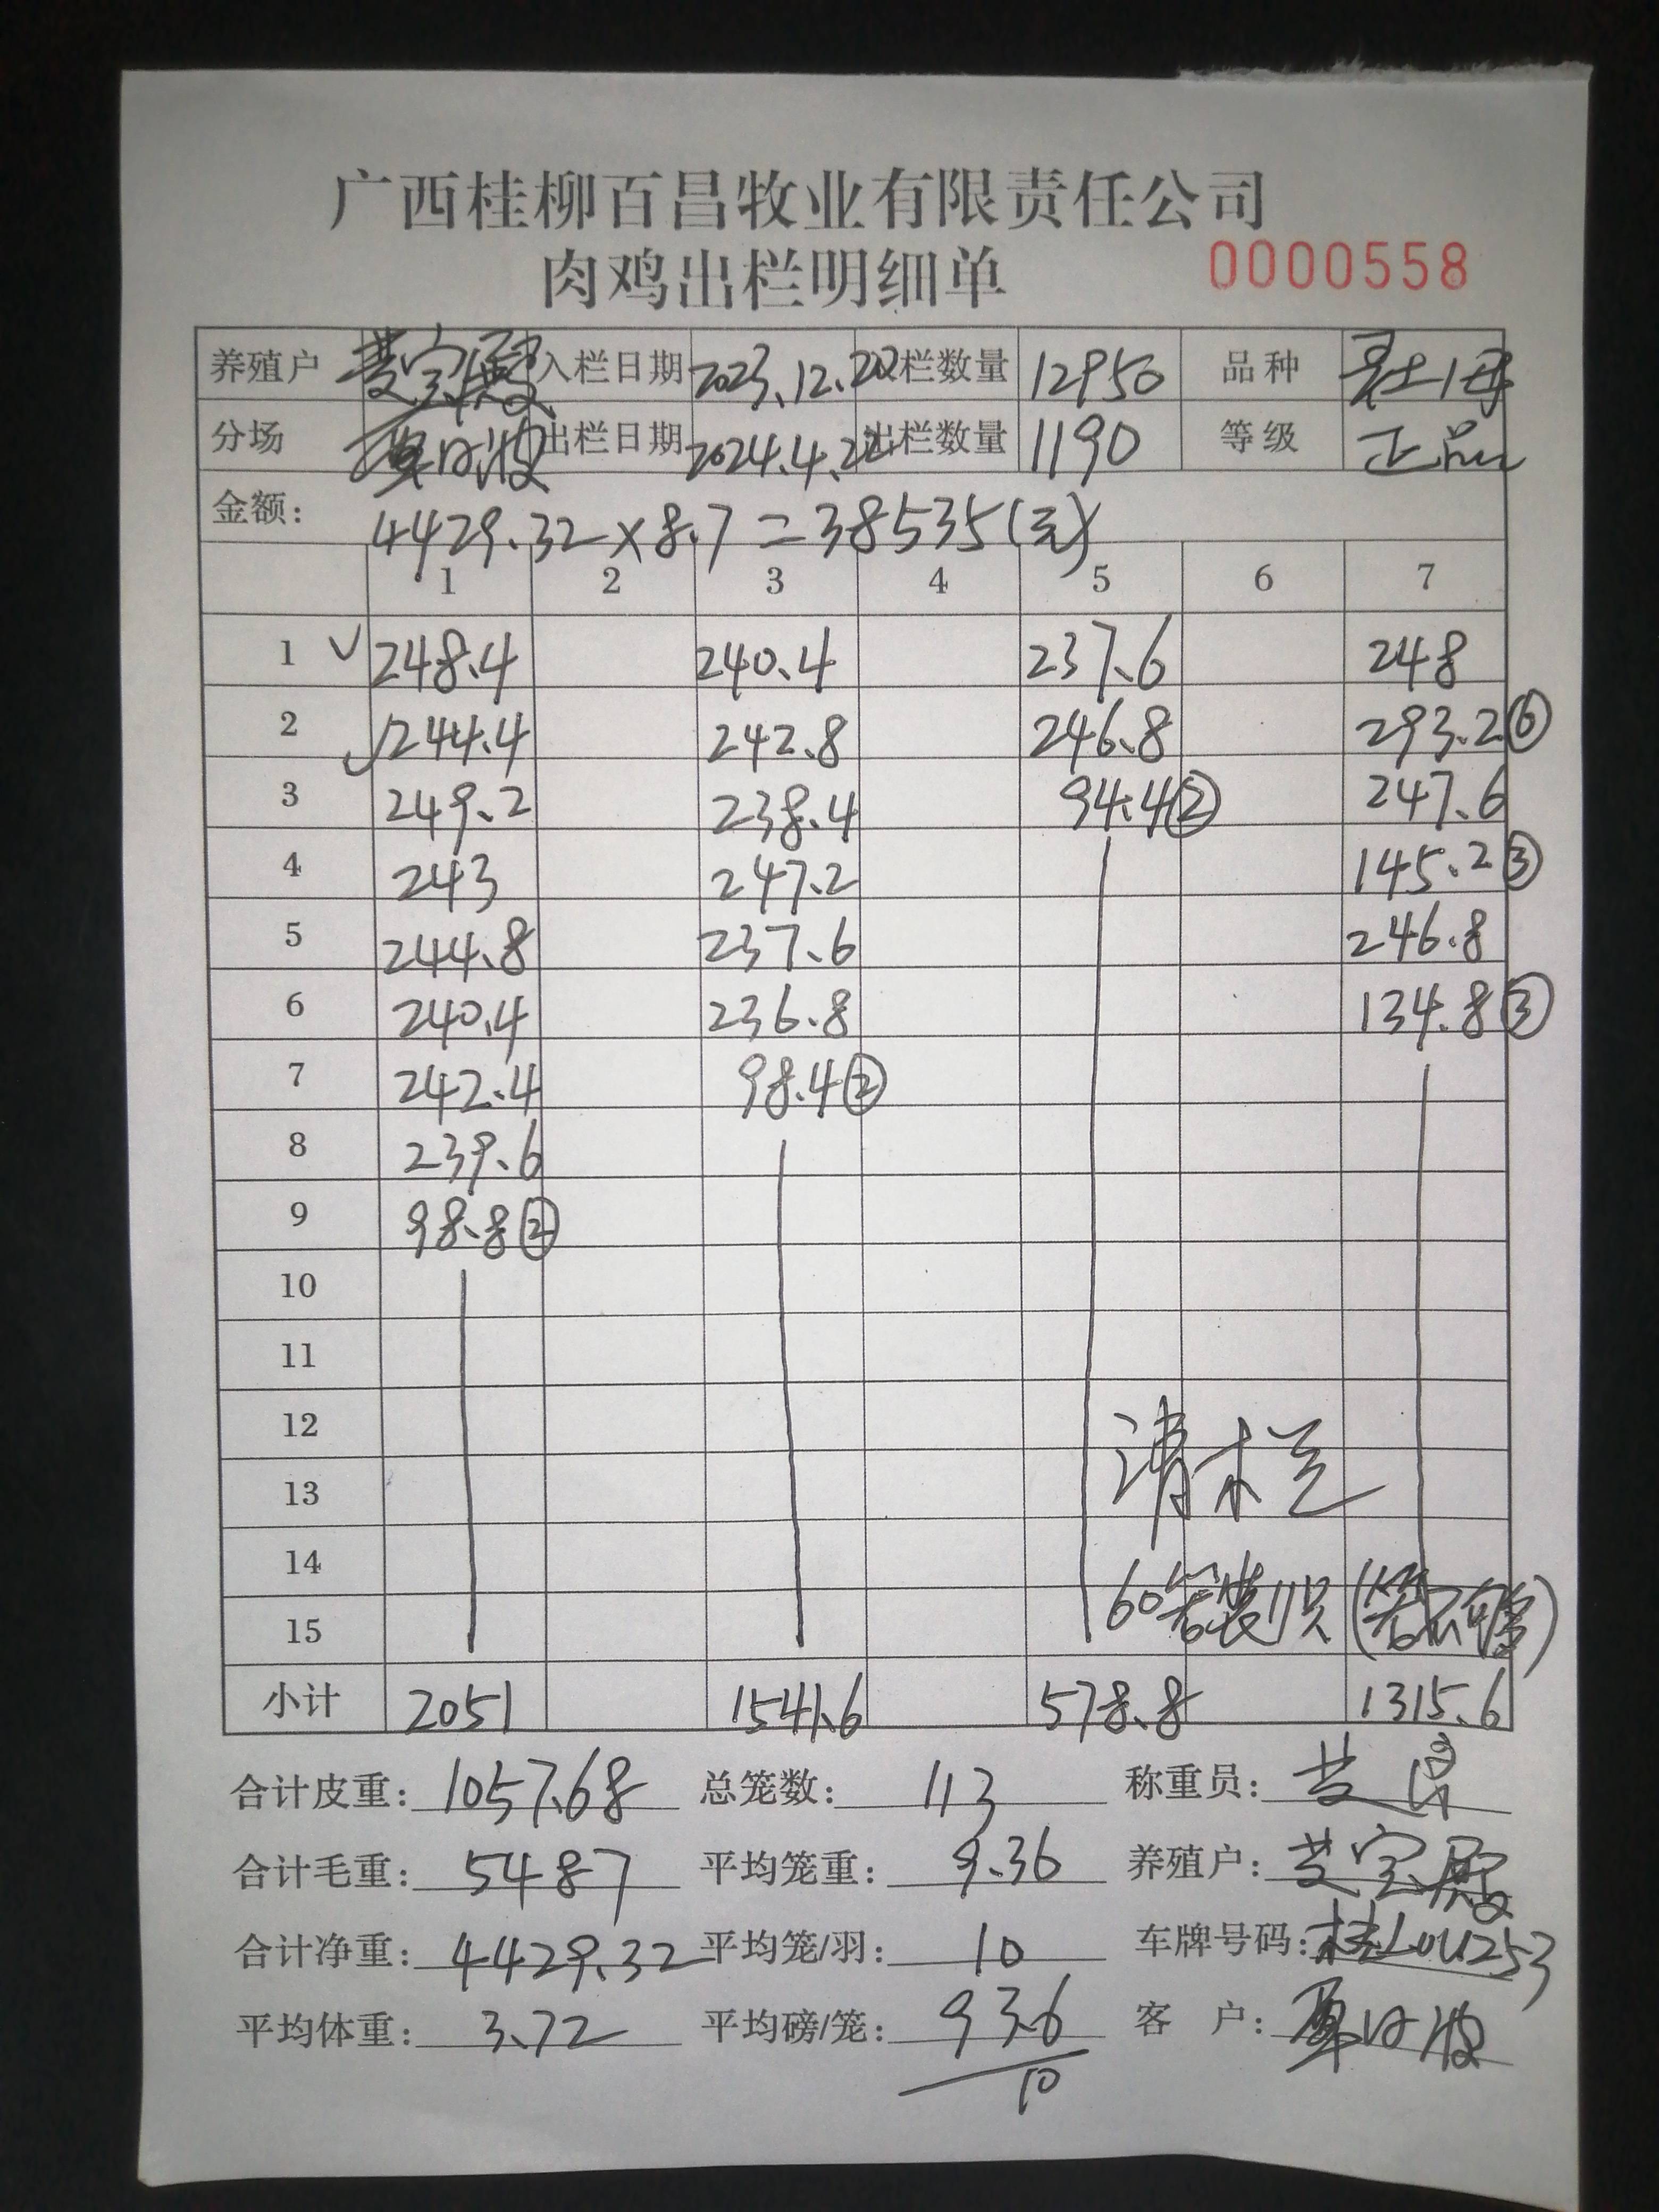 广西桂柳百昌牧业有限责任公司
肉鸡出栏明细单 0000558
养殖户 入栏日期 2023.12.20 栏数量 12950 品种
分场 出栏日期 2024.4.22 出栏数量 1190 等级 正品
金额: 4429.32×8.7=38535(元)
1 2 3 4 5 6 7
1 ✓ 248.4 240.4 237.6 248
2 ✓ 244.4 242.8 246.8 293.2⑥
3 249.2 238.4 94.4② 247.6
4 243 247.2 145.2③
5 244.8 237.6 246.8
6 240.4 236.8 134.8③
7 242.4 98.4②
8 239.6
9 98.8②
10
11
12
13 清栏
14
15 60笼装11只(笼不够)
小计 2051 1541.6 578.8 1315.6
合计皮重: 1057.68 总笼数: 113 称重员:
合计毛重: 5487 平均笼重: 9.36 养殖户:
合计净重: 4429.32 平均笼/羽: 10 车牌号码: 桂L0U253
平均体重: 3.72 平均磅/笼: 93.6/10 客户: